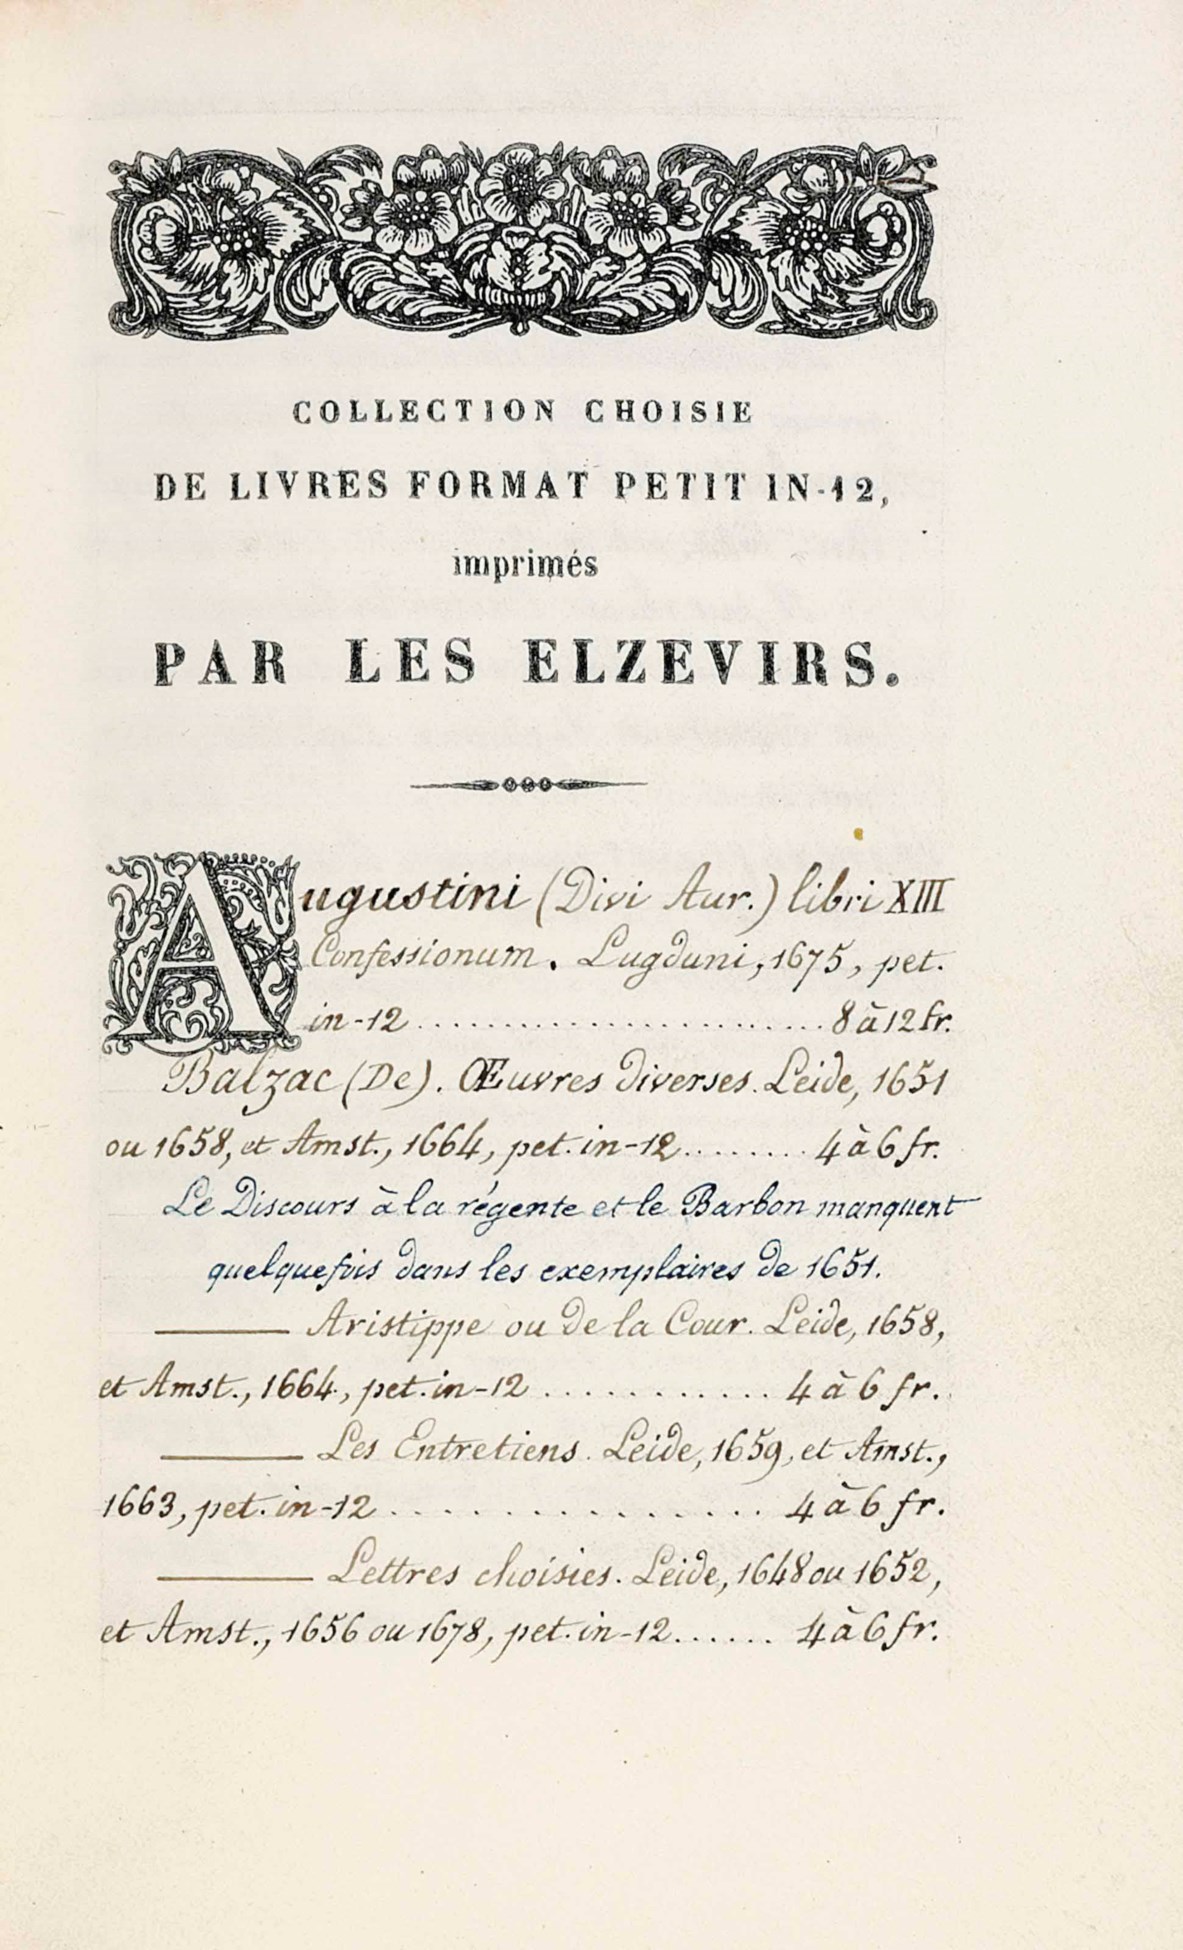 COLLECTION CHOISIE
DE LIVRES FORMAT PETIT IN-12,
imprimés
PAR LES ELZEVIRS.
Augustini (Divi Aur.) libri XIII
Confessionum. Lugduni, 1675, pet.
in-12........................8 à 12 fr.
Balzac (De). Œuvres diverses. Leide, 1651
ou 1658, et Amst., 1664, pet. in-12........4 à 6 fr.
Le Discours à la régente et le Barbon manquent
quelquefois dans les exemplaires de 1651.
——— Aristippe ou de la Cour. Leide, 1658,
et Amst., 1664, pet. in-12...........4 à 6 fr.
——— Les Entretiens. Leide, 1659, et Amst.,
1663, pet. in-12...............4 à 6 fr.
——— Lettres choisies. Leide, 1648 ou 1652,
et Amst., 1656 ou 1678, pet. in-12......4 à 6 fr.